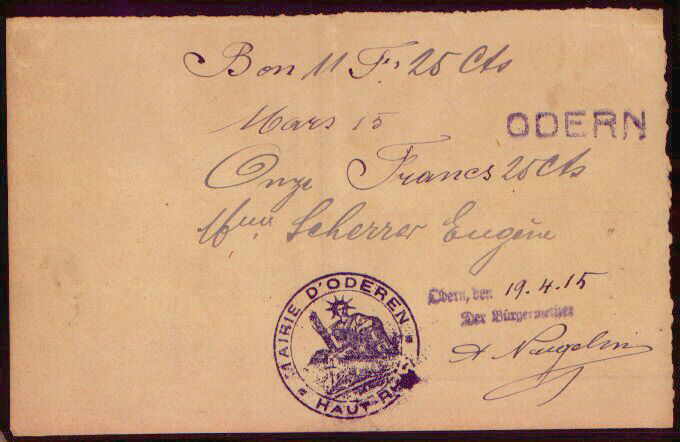 Bon 11 Fr 25 Cts
Mars 15
ODERN
Onze Francs 25 Cts
Mme Scherrer Eugène
MAIRIE D'ODEREN
HAUT-RHIN
Odern, den 19.4.15
Der Bürgermeister